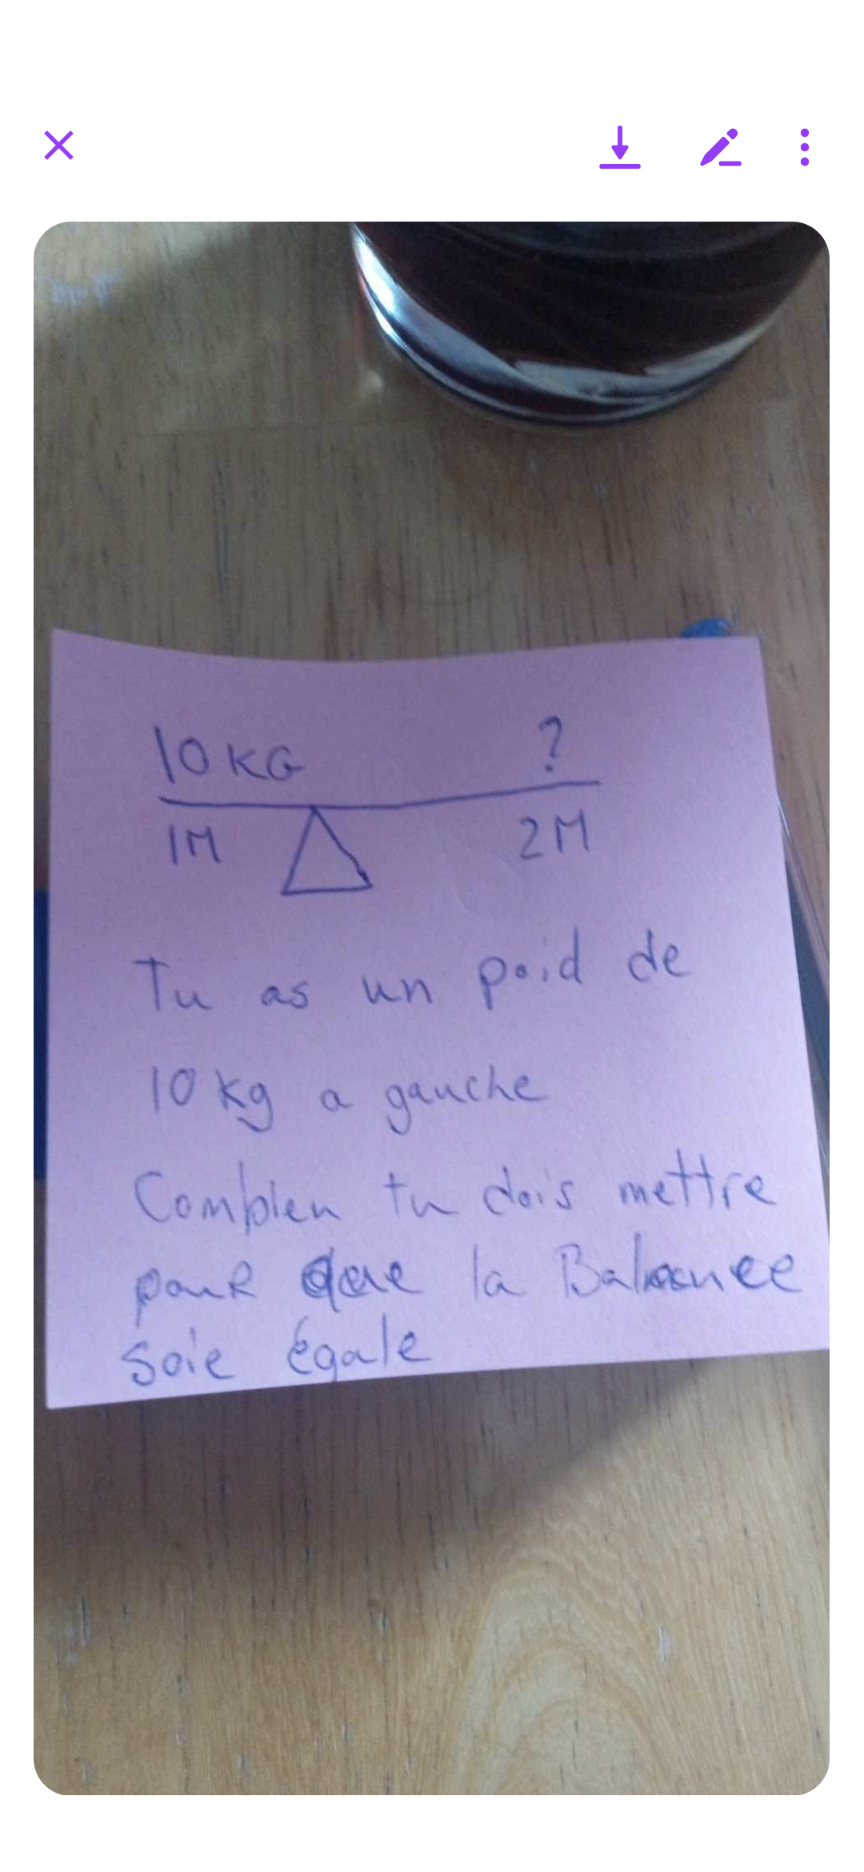 10 KG ?
1M 2M
Tu as un poid de
10 kg a gauche
Combien tu dois mettre
pour que la Balance
soie égale